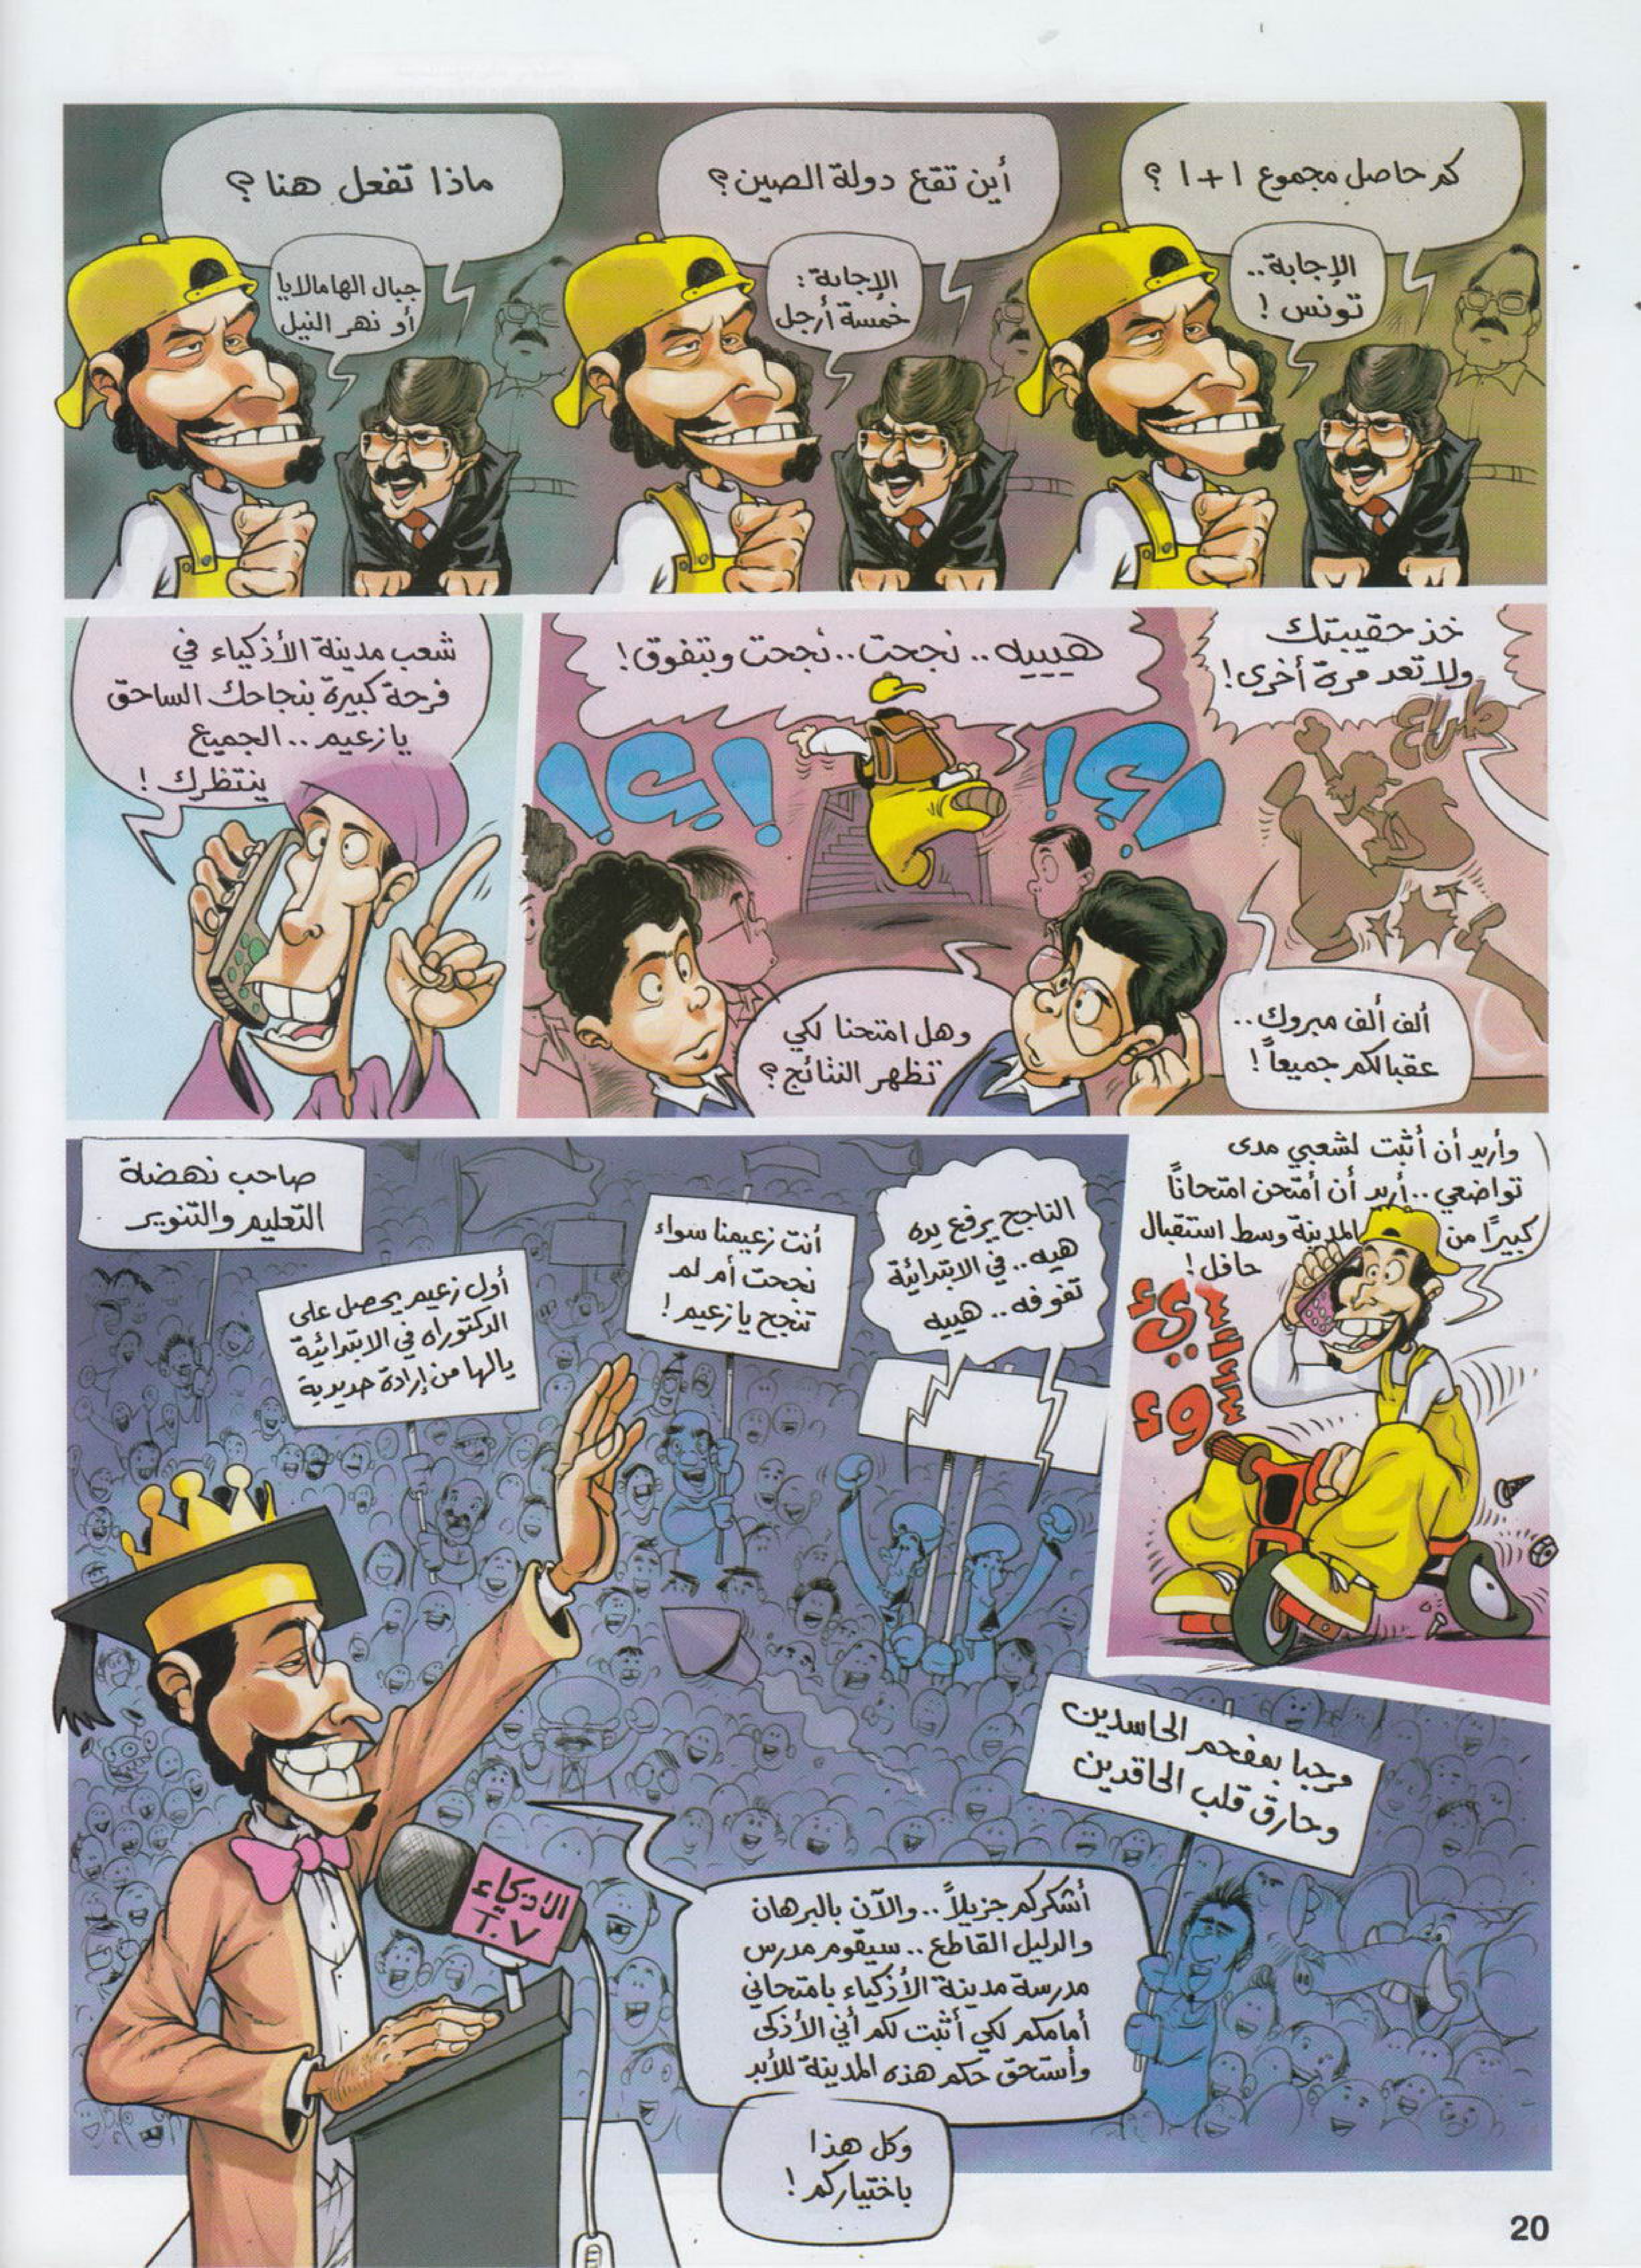 كم حاصل مجموع ١+١ ؟
الإجابة..
تونس !
أين تقع دولة الصين؟
الإجابة :
خمسة أرجل
ماذا تفعل هنا ؟
جبال الهامالايا
أو نهر النيل
خذ حقيبتك
ولا تعد مرة أخرى!
طراخ
ألف ألف مبروك..
عقبالكم جميعاً!
هيييه .. نجحت.. نجحت وبتفوق!
؟!
؟!
وهل امتحنا لكي
تظهر النتائج؟
شعب مدينة الأذكياء في
فرحة كبيرة بنجاحك الساحق
يا زعيم .. الجميع
ينتظرك !
وأريد أن أثبت لشعبي مدى
تواضعي.. أريد أن أمتحن امتحاناً
كبيرًا من المدينة وسط استقبال
حافل!
الناجح يرفع يده
هيه.. في الابتدائية
تفوقه.. هييه
أنت زعيمنا سواء
نجحت أم لم
تنجح يا زعيم !
صاحب نهضة
التعليم والتنوير
أول زعيم يحصل على
الدكتوراه في الابتدائية
يالها من إرادة حديدية
مرحبا بمفحم الحاسدين
وحارق قلب الحاقدين
الأذكياء
T.V
أشكركم جزيلاً.. والآن بالبرهان
والدليل القاطع.. سيقوم مدرس
مدرسة مدينة الأذكياء بامتحاني
أمامكم لكي أثبت لكم أني الأذكى
وأستحق حكم هذه المدينة للأبد
وكل هذا
باختياركم !
20